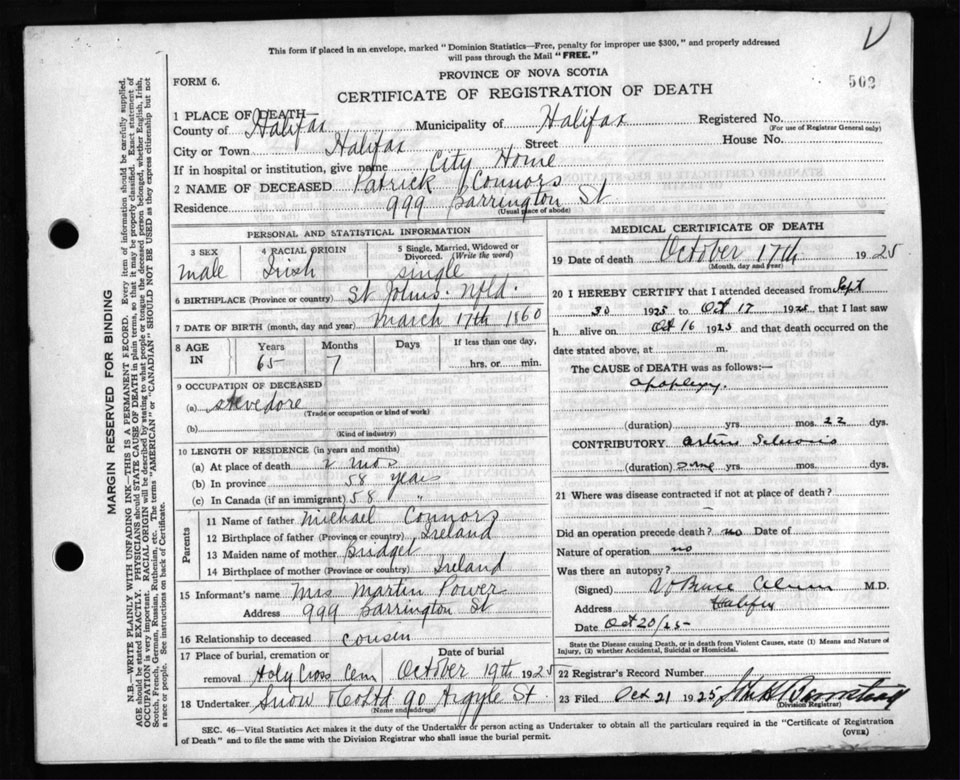 This form if placed in an envelope, marked "Dominion Statistics—Free, penalty for improper use $300," and properly addressed
will pass through the Mail "FREE."
FORM 6.
PROVINCE OF NOVA SCOTIA
502
CERTIFICATE OF REGISTRATION OF DEATH
1 PLACE OF DEATH
County of Halifax Municipality of Halifax Registered No.
(For use of Registrar General only)
City or Town Halifax Street House No.
If in hospital or institution, give name City Home
2 NAME OF DECEASED Patrick Connors
Residence 999 Barrington St
(Usual place of abode)
PERSONAL AND STATISTICAL INFORMATION
3 SEX male
4 RACIAL ORIGIN Irish
5 Single, Married, Widowed or Divorced. (Write the word) single
6 BIRTHPLACE (Province or country) St Johns Nfld.
7 DATE OF BIRTH (month, day and year) March 17th 1860
8 AGE IN Years 65 Months 7 Days If less than one day, hrs. or min.
9 OCCUPATION OF DECEASED
(a) stevedore
(Trade or occupation or kind of work)
(b)
(Kind of industry)
10 LENGTH OF RESIDENCE (in years and months)
(a) At place of death 2 mos
(b) In province 58 years
(c) In Canada (if an immigrant) 58 "
Parents
11 Name of father Michael Connors
12 Birthplace of father (Province or country) Ireland
13 Maiden name of mother Bridget
14 Birthplace of mother (Province or country) Ireland
15 Informant's name Mrs Martin Power
Address 999 Barrington St
16 Relationship to deceased cousin
17 Place of burial, cremation or removal Holy Cross Cem
Date of burial October 19th 1925
18 Undertaker Snow & Co Ltd 90 Argyle St
(Name and address)
MEDICAL CERTIFICATE OF DEATH
19 Date of death October 17th 1925
(Month, day and year)
20 I HEREBY CERTIFY that I attended deceased from Sept
30 1925 to Oct 17 1925 that I last saw
h alive on Oct 16 1925 and that death occurred on the
date stated above, at m.
The CAUSE OF DEATH was as follows:—
apoplexy.
(duration) yrs. mos. 22 dys.
CONTRIBUTORY Arterio Sclerosis
(duration) some yrs. mos. dys.
21 Where was disease contracted if not at place of death?
Did an operation precede death? no Date of
Nature of operation no
Was there an autopsy?
(Signed) Bruce M.D.
Address Halifax
Date Oct 20/25
State the Disease causing Death, or in death from Violent Causes, state (1) Means and Nature of
Injury, (2) whether Accidental, Suicidal or Homicidal.
22 Registrar's Record Number
23 Filed Oct 21 1925
(Division Registrar)
SEC. 46—Vital Statistics Act makes it the duty of the Undertaker or person acting as Undertaker to obtain all the particulars required in the "Certificate of Registration
of Death" and to file the same with the Division Registrar who shall issue the burial permit.
(OVER)
MARGIN RESERVED FOR BINDING
N.B.—WRITE PLAINLY WITH UNFADING INK—THIS IS A PERMANENT RECORD. Every item of information should be carefully supplied.
AGE should be stated EXACTLY. PHYSICIANS should STATE CAUSE OF DEATH in plain terms, so that it may be properly classified. Exact statement of
OCCUPATION is very important. RACIAL ORIGIN will be described by stating to what people or tongue the deceased person belonged, whether English, Irish,
Scotch, French, German, Russian, Ruthenian, etc. The terms "AMERICAN" or "CANADIAN" SHOULD NOT BE USED as they express citizenship but not
a race or people. See instructions on back of Certificate.